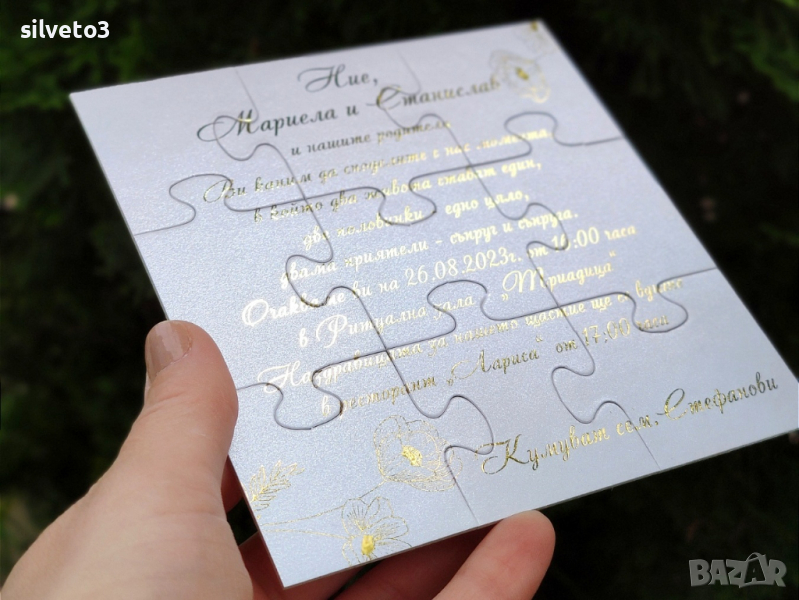 silveto3
Ние,
Мариела и Станислав
и нашите родители
Ви каним да споделите с нас момента
в който два живота стават един,
две половинки - едно цяло,
двама приятели - съпруг и съпруга.
Очакваме ви на 26.08.2023г. от 16:00 часа
в Ритуална зала - "Триадица"
Наздравицата за нашето щастие ще е вдигне
в ресторант "Лариса" от 17:00 часа
Кумуват сем. Стефанови
BAZAR